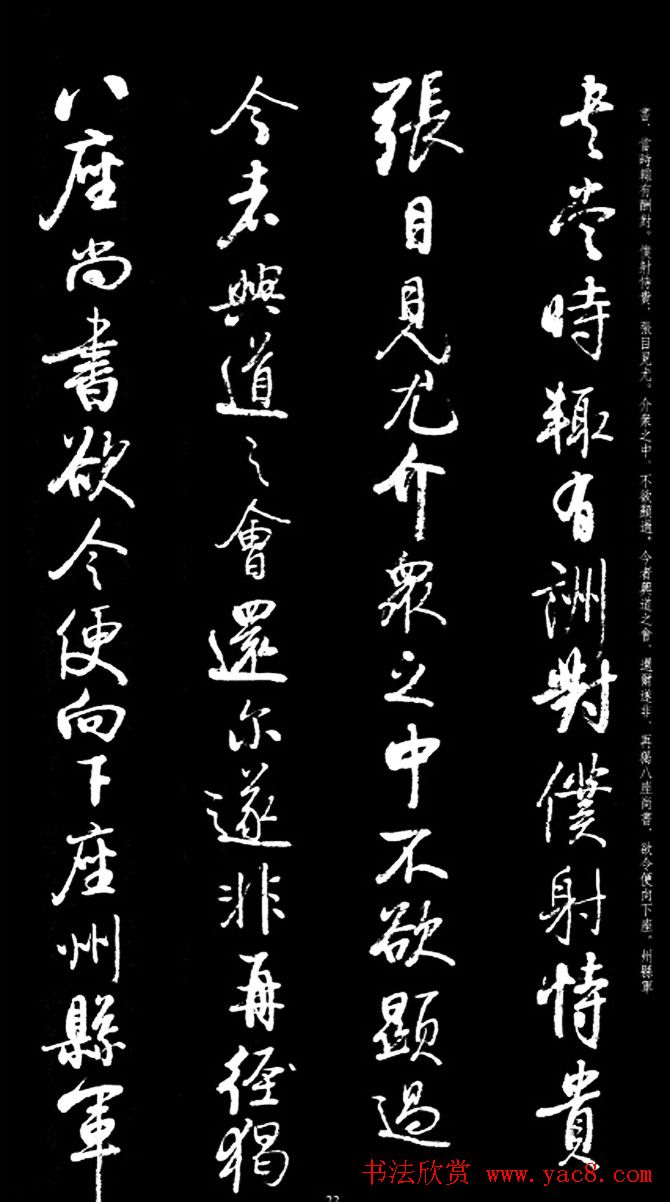 書，當時輒有酬對。僕射恃貴，張目見尤。介衆之中，不欲顯過。今者興道之會，還爾遂非，再猲八座尚書，欲令便向下座。州縣軍
書當時輒有詶對僕射恃貴
張目見尤介衆之中不欲顯過
今者興道之會還尔遂非再徑猲
八座尚書欲令便向下座州縣軍
书法欣赏 www.yac8.com